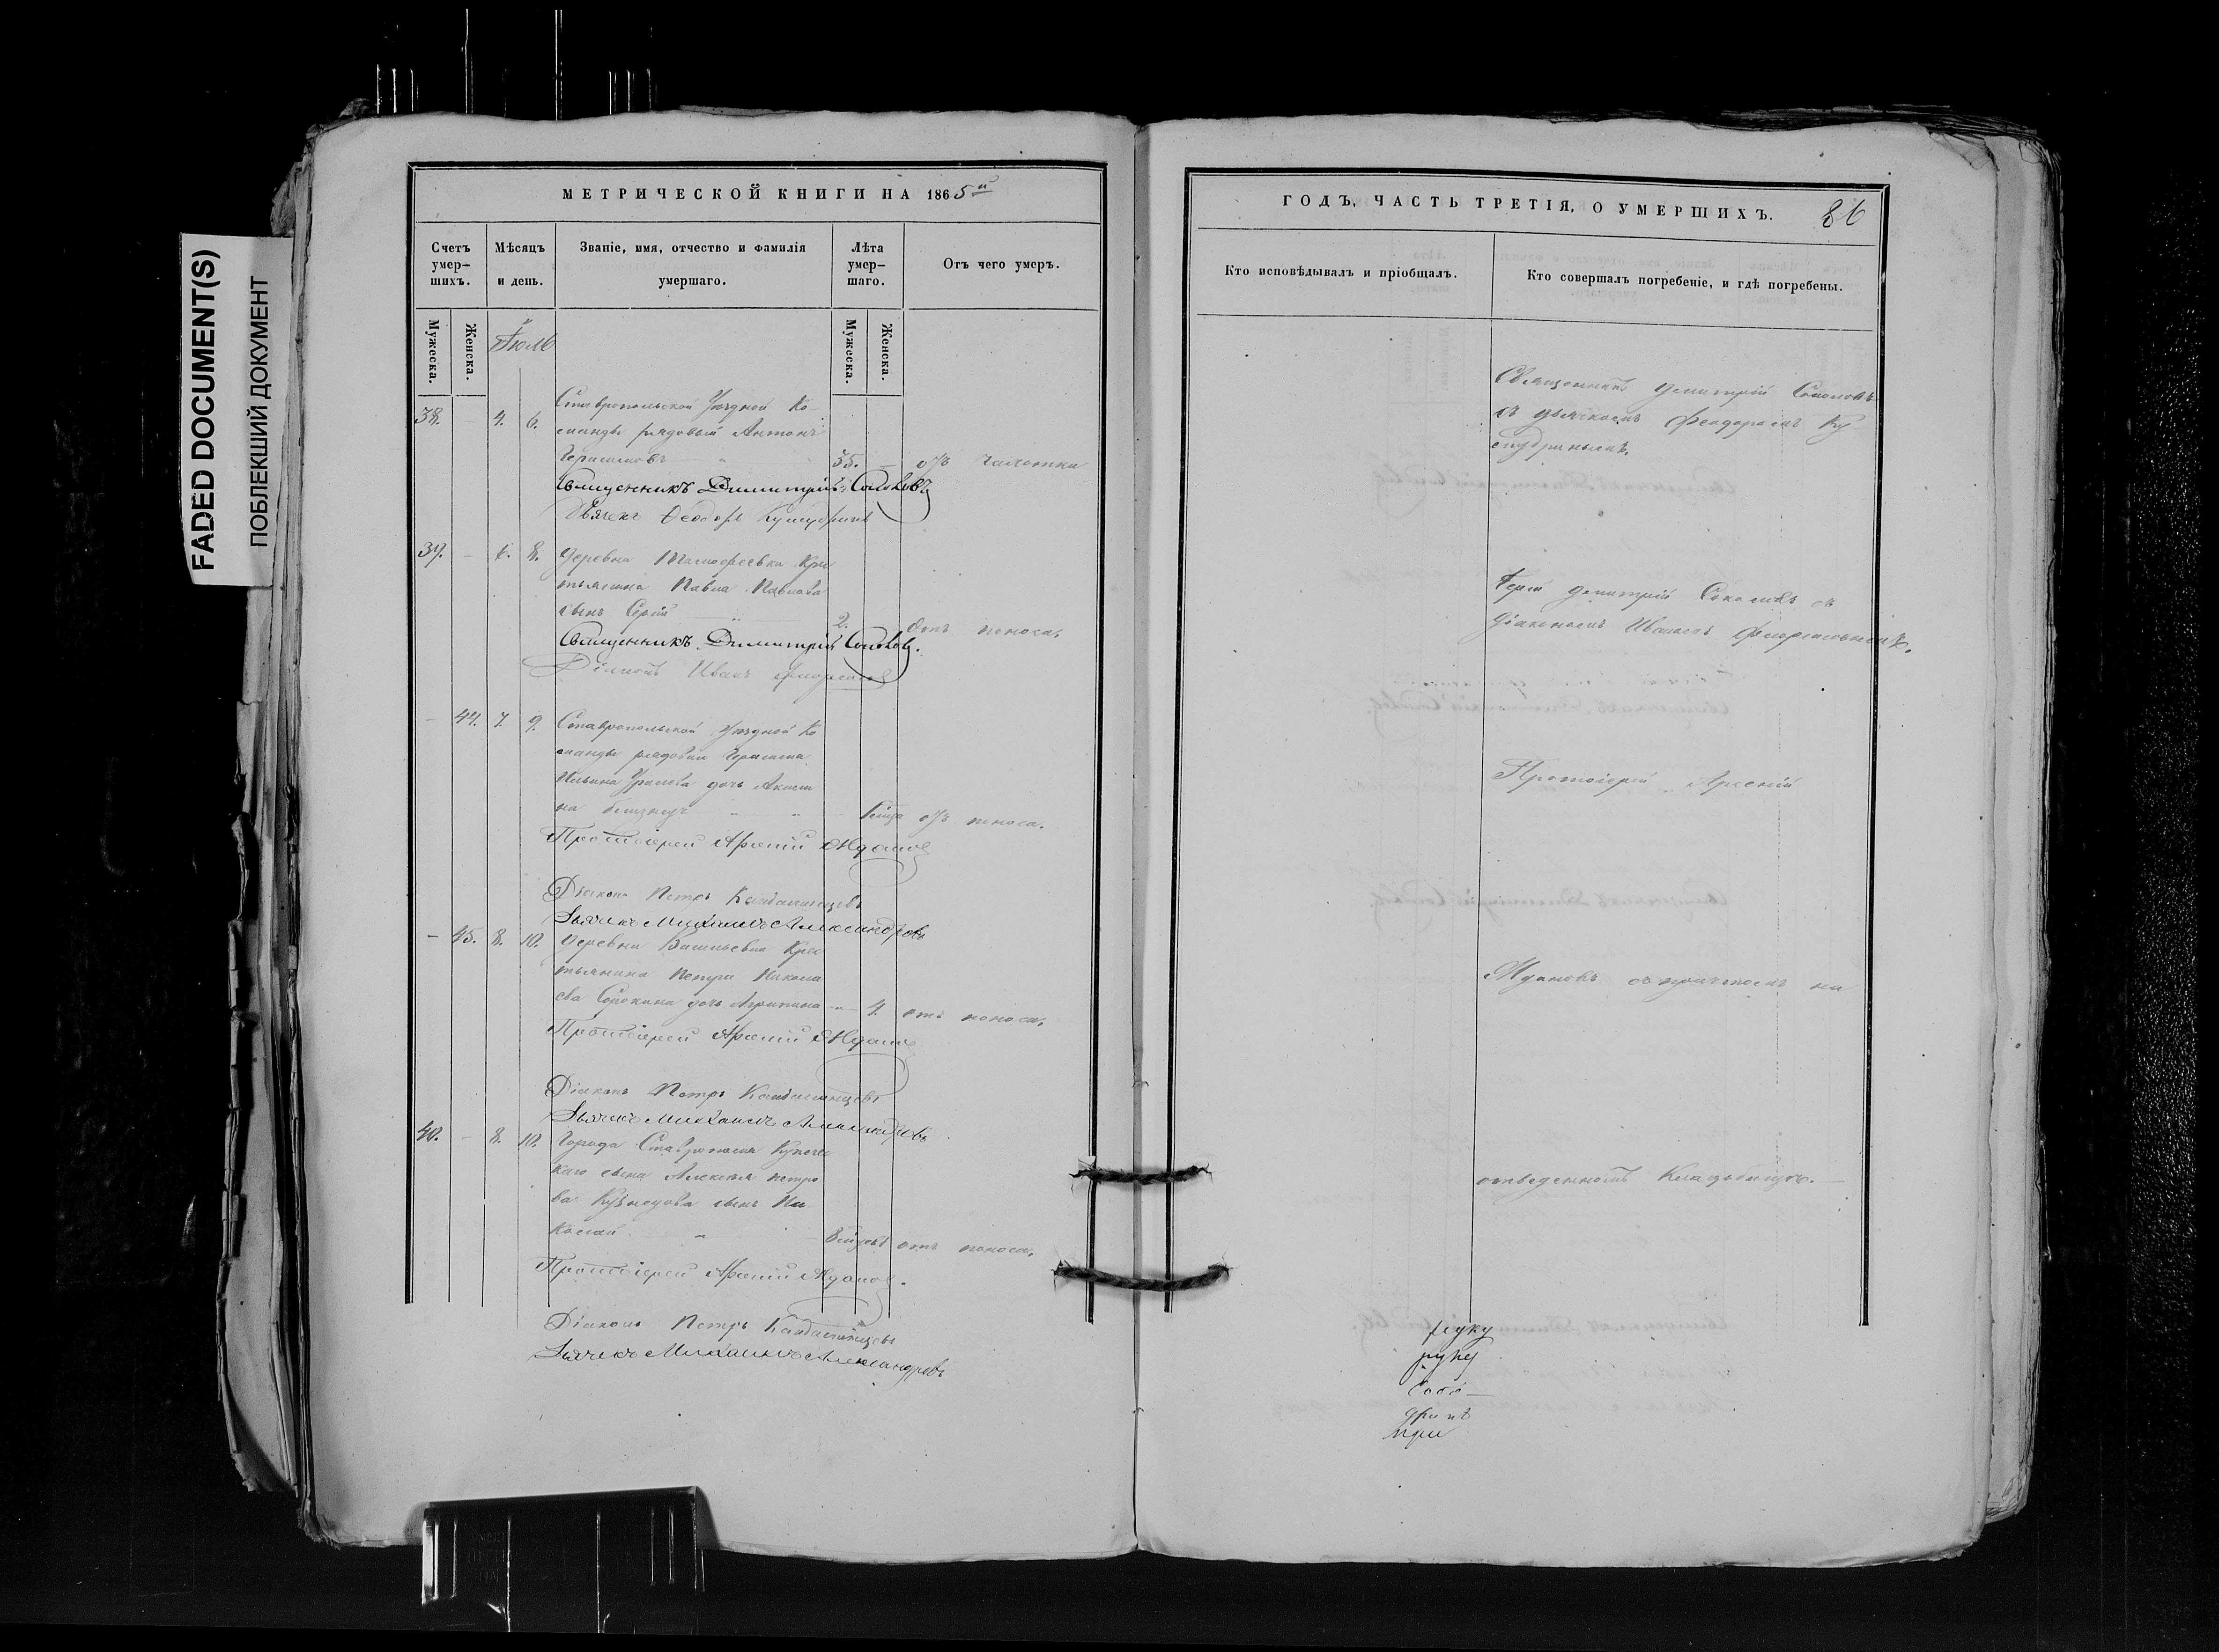 FADED DOCUMENT(S)
ПОБЛЕКШИЙ ДОКУМЕНТ
МЕТРИЧЕСКОЙ КНИГИ НА 1865й
Счетъ умер-шихъ.
Мѣсяцъ и день.
Званіе, имя, отчество и фамилія умершаго.
Лѣта умер-шаго.
Отъ чего умеръ.
Мужеска.
Женска.
Іюль
Мужеска.
Женска.
Ставропольской Уѣздной Ко-
38. 4. 6. манды рядовый Антонъ
Герасимовъ 55. отъ чахотки
Священникъ Димитрій Соколовъ
Дьячекъ Ѳеодоръ
39. 6. 8. Деревни Тимофеевки Кре
стьянина Павла Павлова
сынъ Сергій 2. отъ поноса.
Священникъ Димитрій Соколовъ.
Діаконъ Иванъ
44. 7. 9. Ставропольской Уѣздной Ко
манды рядоваго Герасима
Ильина дочь Акили
на отъ поноса.
Протоіерей Арсеній Ждановъ
Діаконъ Петръ
Дьячекъ Михаилъ Александровъ
45. 8. 10. Деревни Васильевки Крес
тьянина Петра Никола
ева Сорокина дочь Агрипина 4. отъ поноса.
Протоіерей Арсеній Ждановъ
Діаконъ Петръ
Дьячекъ Михаилъ Александровъ
40. 8. 10. Города Ставрополя Купечес
каго сына Алексѣя Петро
ва Кузнецова сынъ Ни
колай отъ поноса.
Протоіерей Арсеній Ждановъ.
Діаконъ Петръ
Дьячекъ Михаилъ Александровъ
ГОДЪ, ЧАСТЬ ТРЕТІЯ, О УМЕРШИХЪ.
86
Кто исповѣдывалъ и пріобщалъ.
Кто совершалъ погребеніе, и гдѣ погребены.
Священникъ Димитрій Соколовъ
съ дьячкомъ Феодоромъ
Іерей Димитрій Соколовъ съ
діакономъ Иваномъ
Протоіерей Арсеній
Ждановъ съ причтомъ на
отведенномъ Кладбищѣ.
руку